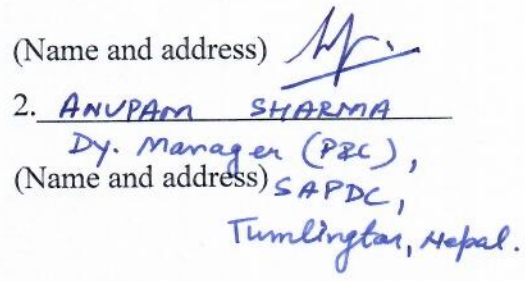 (Name and address)
2. ANUPAM SHARMA
Dy. Manager (P&C),
(Name and address) SAPDC,
Tumlingtar, Nepal.